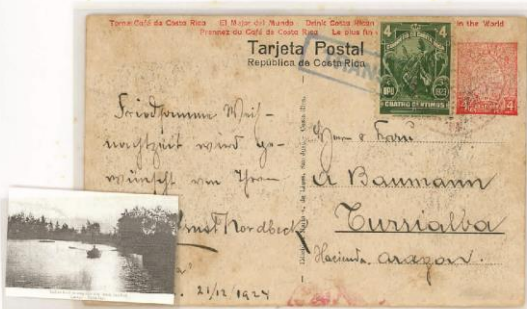 Tome Café de Costa Rica El Mejor del Mundo Drink Costa Rican in the World
Prennez du Café de Costa Rica Le plus fin
Tarjeta Postal
República de Costa Rica
4 4
UPU 1923
CUATRO CENTIMOS
4 4
Friedsame Weih-
nachtzeit wird ge-
wünscht von Ihrem
Ernst Nordbeck
21/12/1924
Herrn & Frau
A Baumann
Turrialba
Hacienda Aragon.